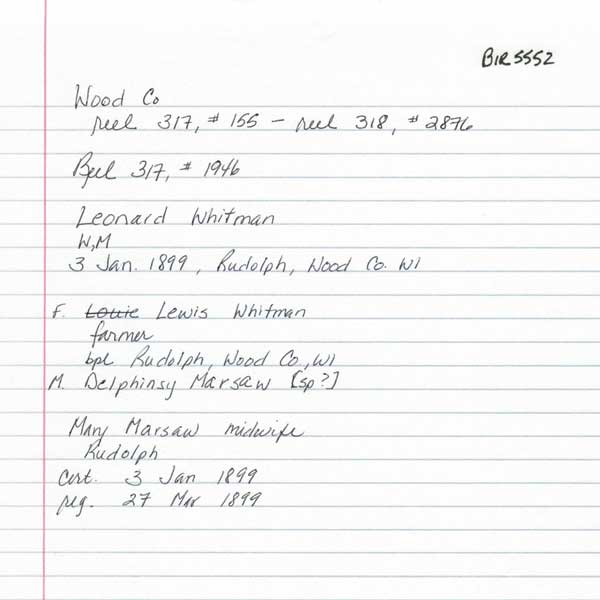 BIR5552
Wood Co
reel 317, # 155 - reel 318, # 2876
Reel 317, # 1946
Leonard Whitman
W,M
3 Jan. 1899, Rudolph, Wood Co. WI
F. Louie Lewis Whitman
farmer
bpl Rudolph, Wood Co., WI
M. Delphinsy Marsaw [sp?]
Mary Marsaw midwife
Rudolph
Cert. 3 Jan 1899
reg. 27 Mar 1899